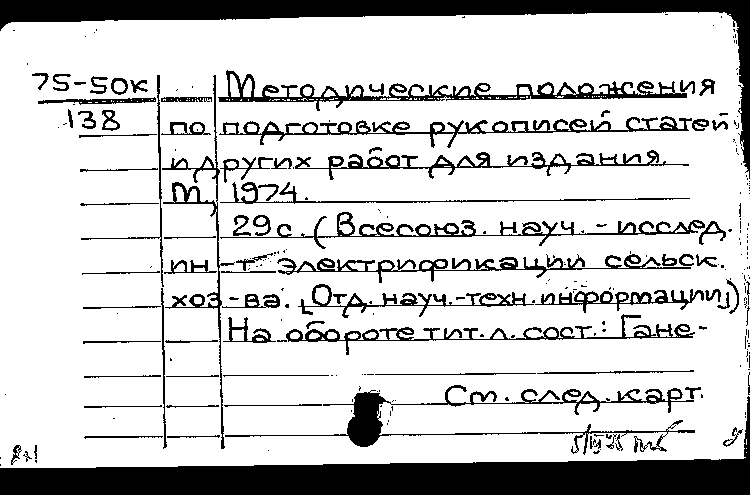 75-50к Методические положения
138 по подготовке рукописей статей
и других работ для издания.
М., 1974.
29с. (Всесоюз. науч.-исслед.
ин-т электрификации сельск.
хоз-ва. [Отд. науч.-техн. информации])
На обороте тит. л. сост.: Гане-
См. след. карт.